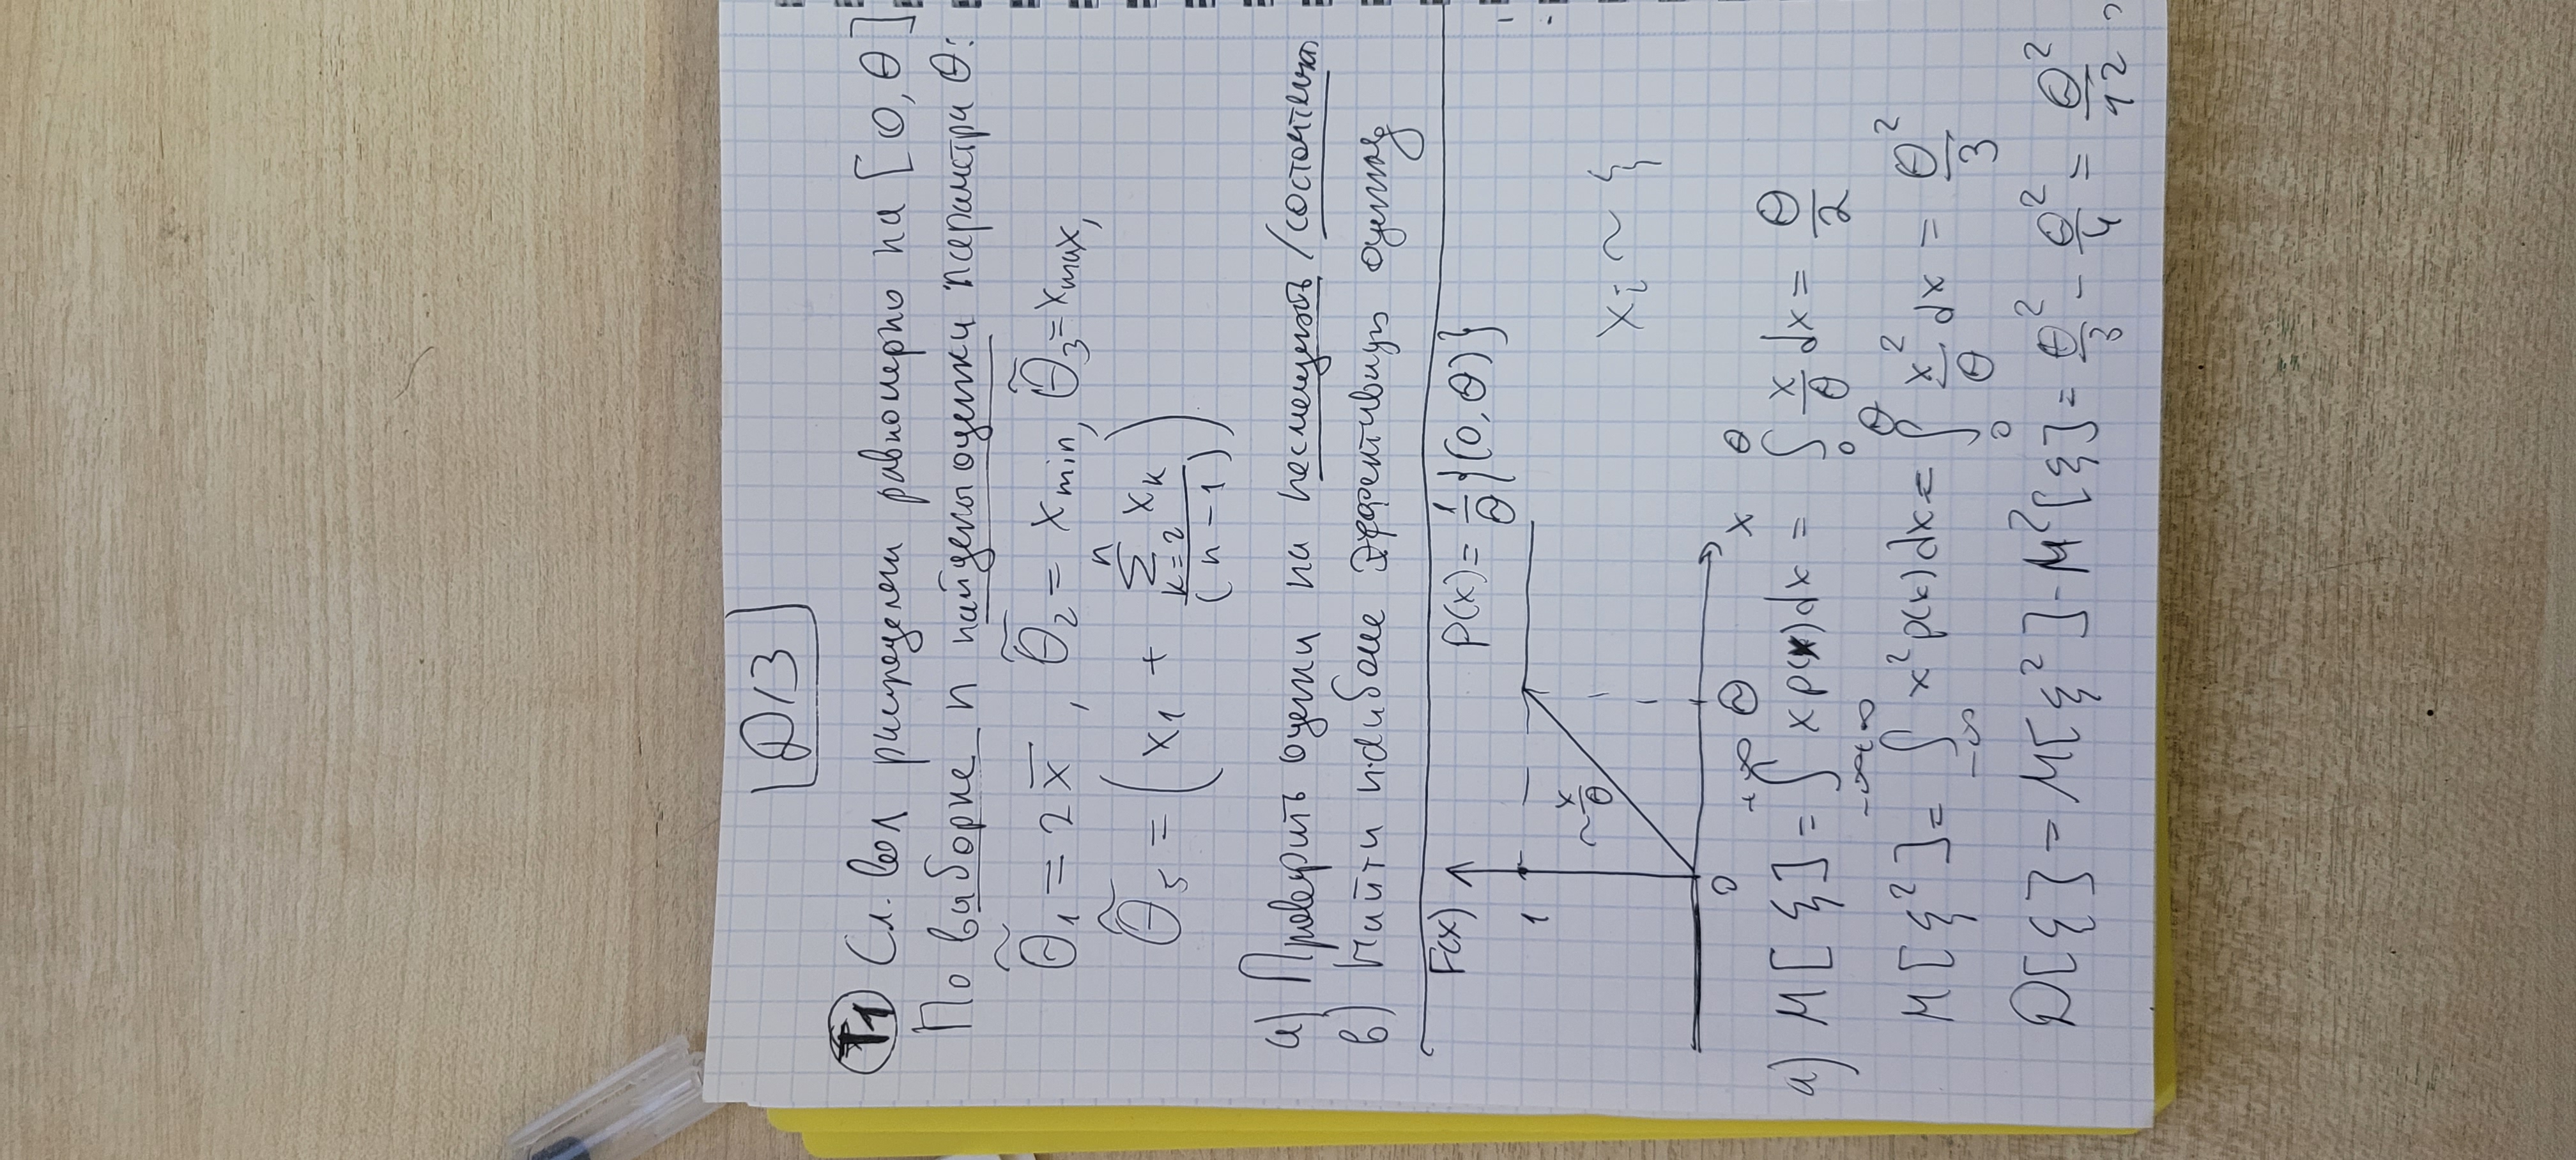 Д/З
Т1 Сл. вел распределена равномерно на [0, θ]
По выборке n найдены оценки параметра θ:
θ̃₁ = 2x̄, θ̃₂ = x_min, θ̃₃ = x_max,
θ̃₅ = (x₁ + Σⁿₖ₌₂ xₖ / (n-1))
а) Проверить оценки на несмещность / состоятельн
в) Найти наиболе эффективную оценку
F(x) p(x) = 1/θ {(0, θ)}
1
~x/θ
xᵢ ~ ξ
0 θ x
а) M[ξ] = ∫₋∞⁺∞ x p(x) dx = ∫₀^θ x/θ dx = θ/2
M[ξ²] = ∫₋∞⁺∞ x² p(x) dx = ∫₀^θ x²/θ dx = θ²/3
D[ξ] = M[ξ²] - M²[ξ] = θ²/3 - θ²/4 = θ²/12,